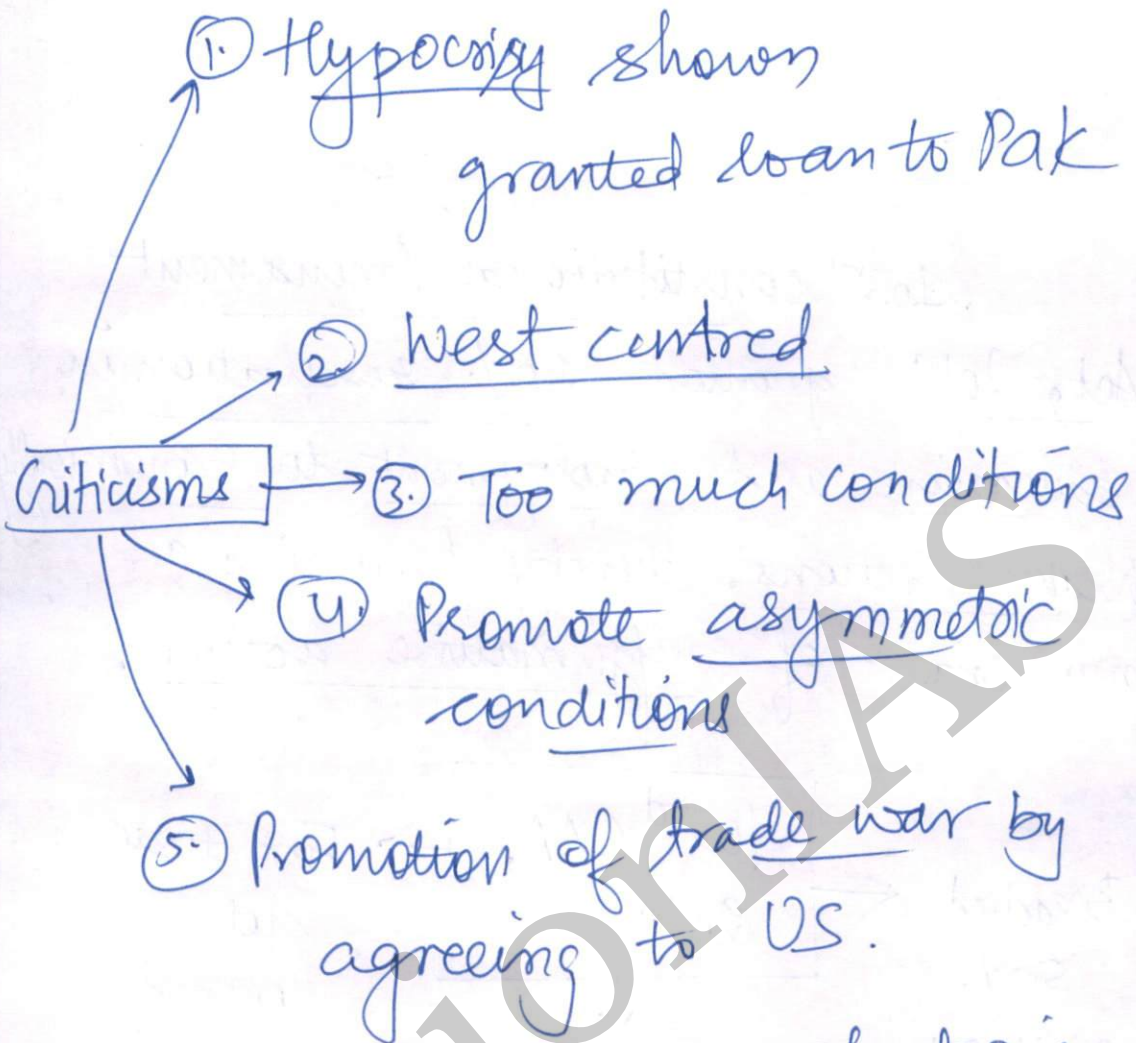 1. Hypocrisy shown
granted loan to Pak
2. West centred
Criticisms
3. Too much conditions
4. Promote asymmetric
conditions
5. Promotion of trade war by
agreeing to US.
ionIAS